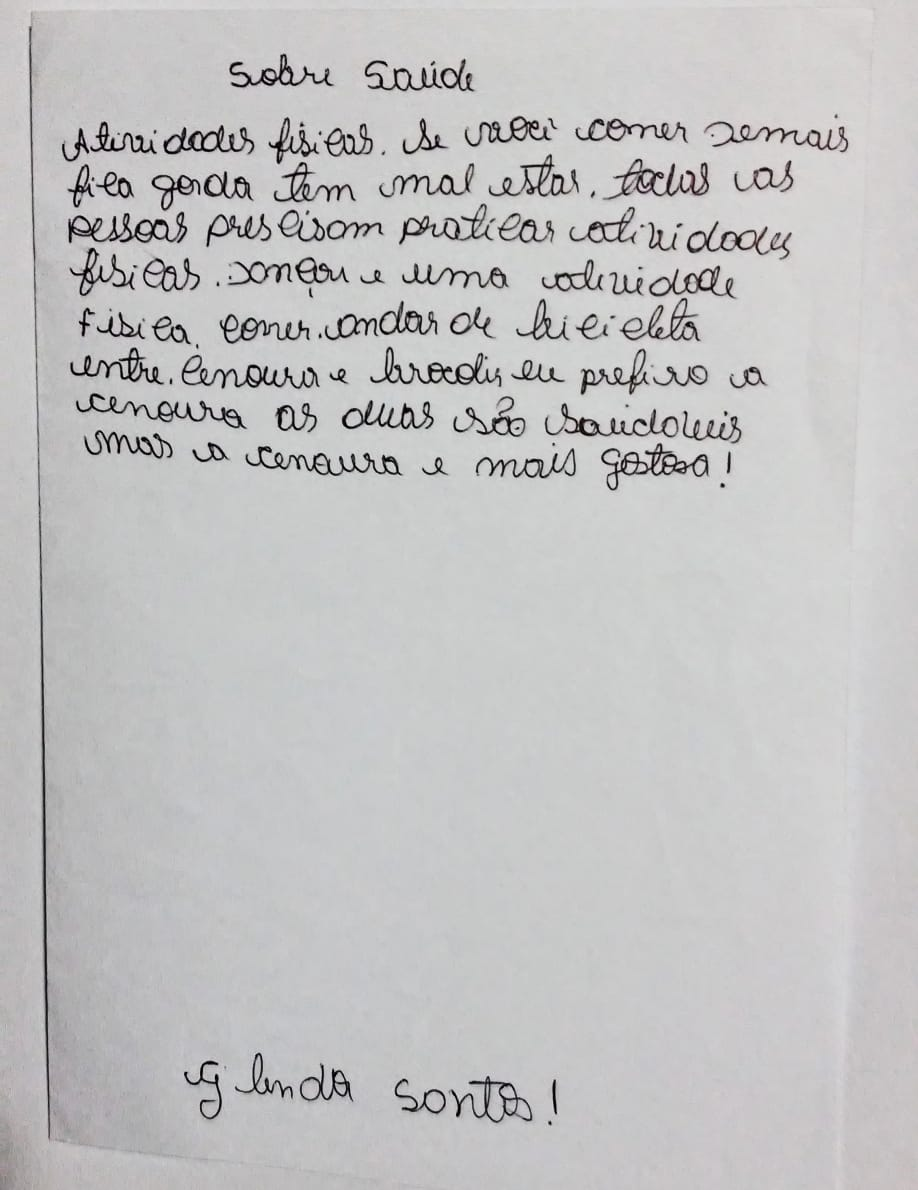 Sobre Saúde
Atividades físicas. Se você comer demais
fica gorda tem mal estar. todas as
pessoas prescisam praticar atividades
físicas. Dançar e uma atividade
física, correr. andar de bicicleta
entre. Cenoura e brocolis eu prefiro a
cenoura as duas são saudaveis
mas a cenoura e mais gostosa!
Glenda Santos!